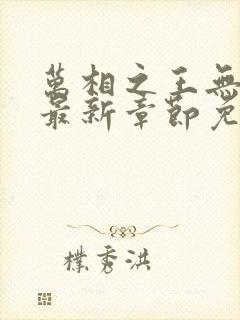 萬相之王無
最新章節免
樸秀洪